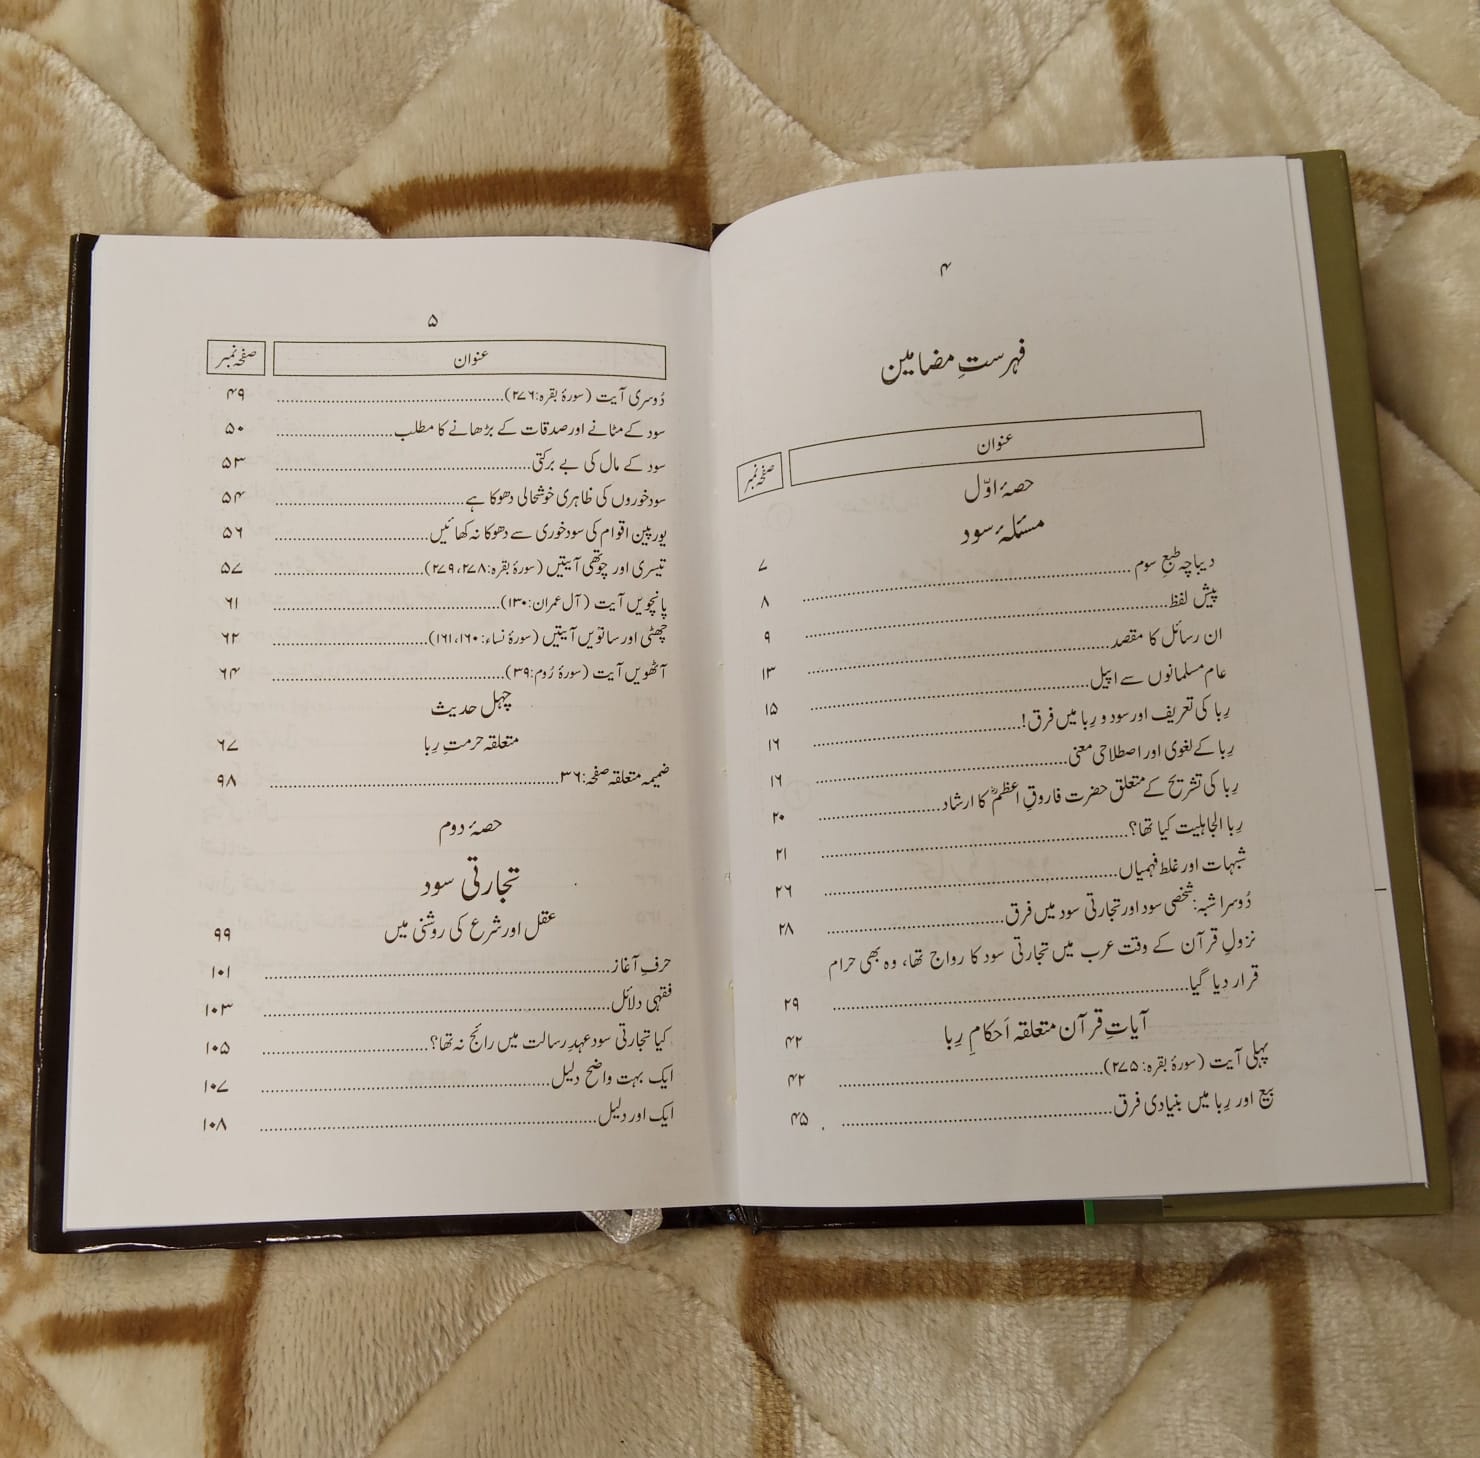 ۴
فہرستِ مضامین
عنوان صفحہ نمبر
حصۂ اوّل
مسئلۂ سود
دیباچہ طبعِ سوم ........ ۷
پیش لفظ ........ ۸
ان رسائل کا مقصد ........ ۹
عام مسلمانوں سے اپیل ........ ۱۳
رِبا کی تعریف اور سود و رِبا میں فرق! ........ ۱۵
رِبا کے لغوی اور اصطلاحی معنی ........ ۱۶
رِبا کی تشریح کے متعلق حضرت فاروقِ اعظمؓ کا ارشاد ........ ۱۶
رِبا الجاہلیت کیا تھا؟ ........ ۲۰
شبہات اور غلط فہمیاں ........ ۲۱
دُوسرا شبہ: شخصی سود اور تجارتی سود میں فرق ........ ۲۶
نزولِ قرآن کے وقت عرب میں تجارتی سود کا رواج تھا، وہ بھی حرام ۲۸
قرار دیا گیا ........ ۲۹
آیاتِ قرآن متعلقہ اَحکامِ رِبا ۴۲
پہلی آیت (سورۂ بقرہ: ۲۷۵) ........ ۴۲
بیع اور رِبا میں بنیادی فرق ........ ۴۵
۵
عنوان صفحہ نمبر
دُوسری آیت (سورۂ بقرہ: ۲۷۶) ........ ۴۹
سود کے مٹانے اور صدقات کے بڑھانے کا مطلب ........ ۵۰
سود کے مال کی بے برکتی ........ ۵۳
سود خوروں کی ظاہری خوشحالی دھوکا ہے ........ ۵۴
یورپین اقوام کی سود خوری سے دھوکا نہ کھائیں ........ ۵۶
تیسری اور چوتھی آیتیں (سورۂ بقرہ: ۲۷۸، ۲۷۹) ........ ۵۷
پانچویں آیت (آل عمران: ۱۳۰) ........ ۶۱
چھٹی اور ساتویں آیتیں (سورۂ نساء: ۱۶۰، ۱۶۱) ........ ۶۲
آٹھویں آیت (سورۂ رُوم: ۳۹) ........ ۶۴
چہل حدیث
متعلقہ حرمتِ رِبا ۶۷
ضمیمہ متعلقہ صفحہ: ۳۶ ........ ۹۸
حصۂ دوم
تجارتی سود
عقل اور شرع کی روشنی میں ۹۹
حرفِ آغاز ........ ۱۰۱
فقہی دلائل ........ ۱۰۳
کیا تجارتی سود عہدِ رسالت میں رائج نہ تھا؟ ........ ۱۰۵
ایک بہت واضح دلیل ........ ۱۰۷
ایک اور دلیل ........ ۱۰۸